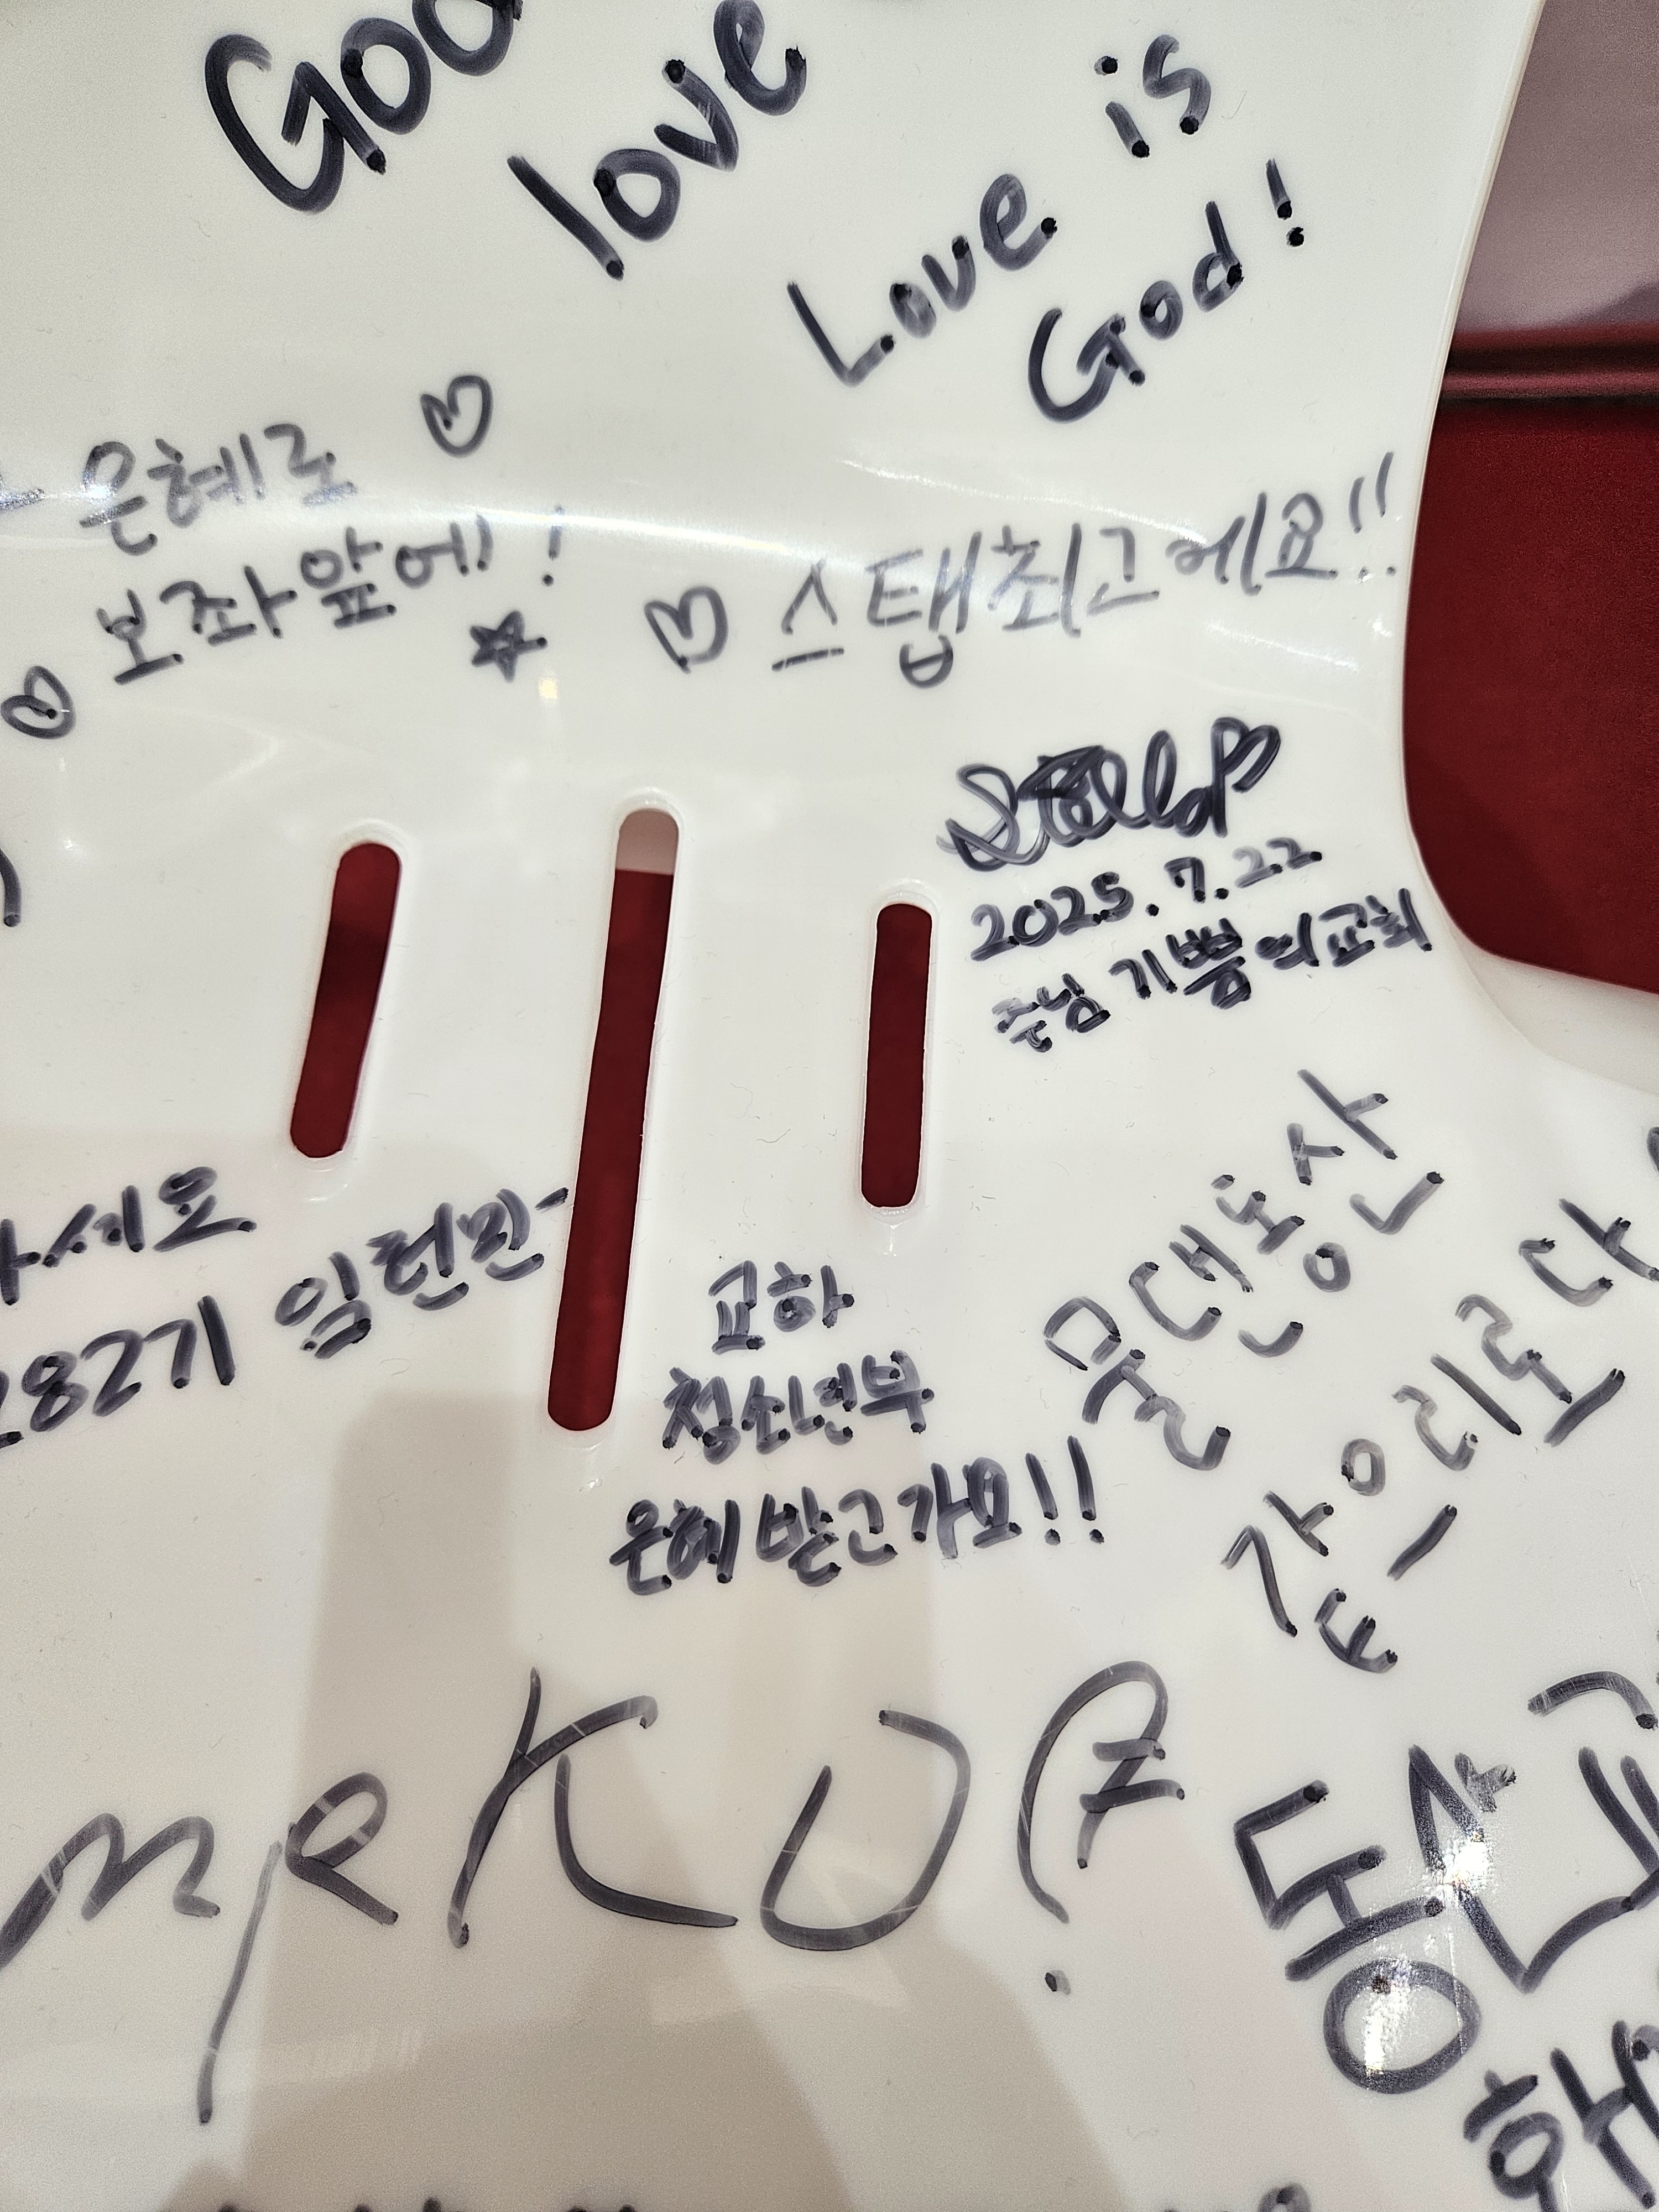 God
love
Love is
God!
은혜로
보좌앞에!
스탭최고에요!!
Stella
2025.7.22
주님 기쁨의교회
세요
282기 임현민
교하
청소년부
은혜 받고가요!!
물댄동산
같으리로다